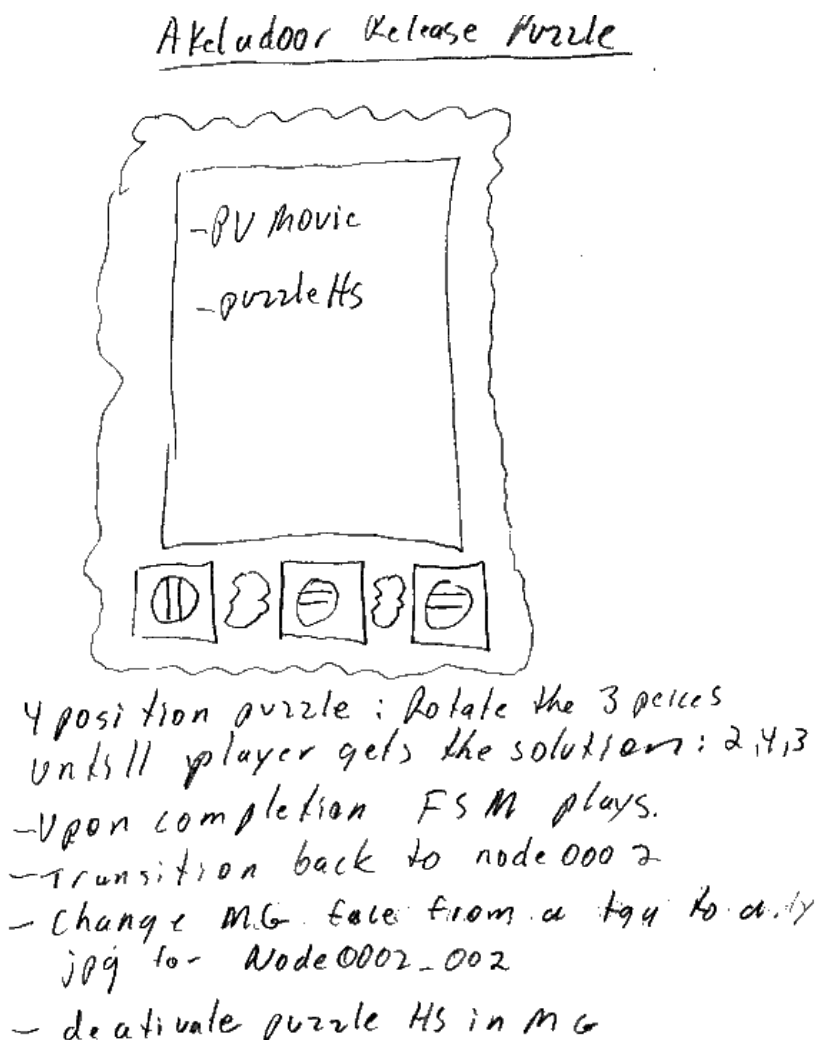 Akeladoor Release Puzzle
-PV Movie
-puzzle HS
4 position puzzle : Rotate the 3 peices
untill player gets the solution: 2,4,3
-Upon completion FSM plays.
-Transition back to node 0002
- Change MG face from a tga to a
jpg for Node0002_002
- deativate puzzle HS in MG